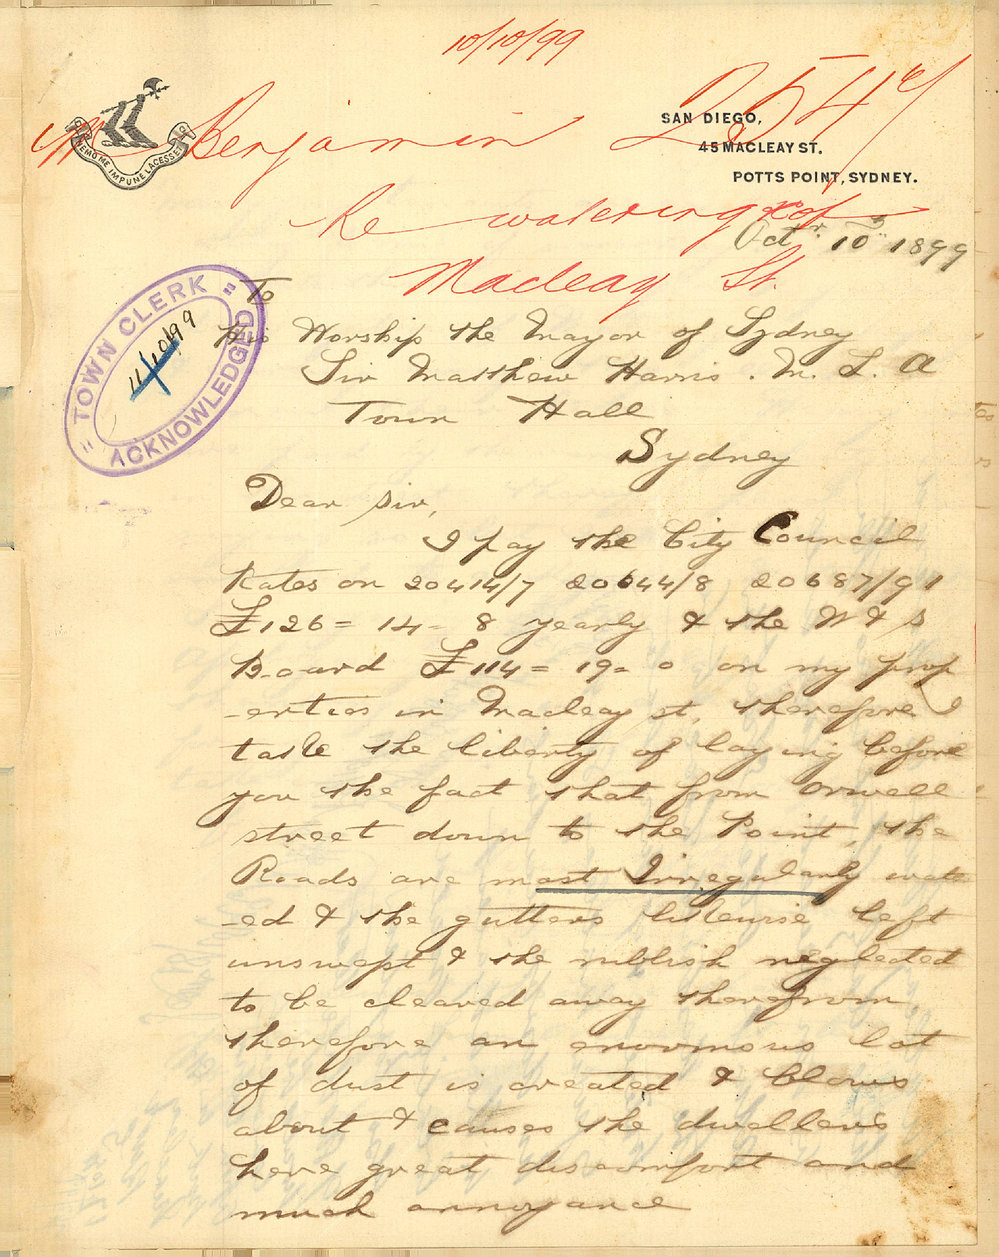 10/10/99
Mr Benjamin 2547
NEMO ME IMPUNE LACESSET
SAN DIEGO,
45 MACLEAY ST.
POTTS POINT, SYDNEY.
Re watering of
Macleay St.
Octr. 10th 1899
TOWN CLERK
11/10/99
ACKNOWLEDGED
To
His Worship the Mayor of Sydney
Sir Matthew Harris. M. L. A
Town Hall
Sydney
Dear Sir,
I pay the City Council
Rates on 20414/7 20644/8 20687/91
£126 = 14 = 8 yearly & the W & S
Board £114 = 19 = 0 on my prop
-erties in Macleay st, therefore I
take the liberty of laying before
you the fact that from Orwell
street down to the Point, the
Roads are most Irregularly water
-ed & the gutters likewise left
unswept & the rubbish neglected
to be cleared away therefrom,
therefore an enormous lot
of dust is created & blows
about & causes the dwellers
here great discomfort and
much annoyance